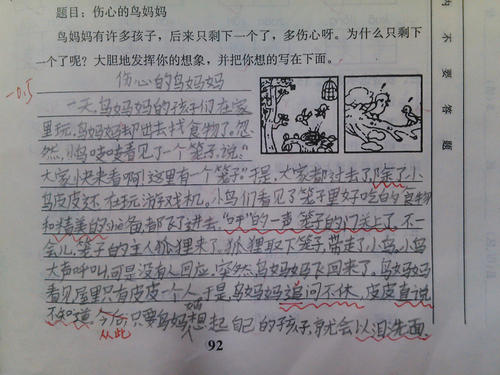 题目：伤心的鸟妈妈
鸟妈妈有许多孩子，后来只剩下一个了，多伤心呀。为什么只剩下
一个了呢？大胆地发挥你的想象，并把你想的写在下面。
内不要答题
-0.5
伤心的鸟妈妈
一天，鸟妈妈的孩子们在家
里玩，鸟妈妈却出去找食物了。忽
然，小鸟吱吱看见了一个笼子，说："
大家快来看啊！这里有一个笼子。"于是，大家都过去了，除了小
鸟皮皮还在玩游戏机。小鸟们看见了笼子里好吃的食物
和精美的设备，都飞进去，"呼"的一声笼子的门关上了，不一
会儿，笼子的主人狐狸来了，狐狸取下笼子，带走了小鸟，小鸟
大声呼叫，可是没有人回应，突然鸟妈妈飞回来了。鸟妈妈
看见屋里只有皮皮一个人，于是，鸟妈妈追问不休，皮皮直说
不知道。今后只要鸟妈妈想起自己的孩子，就会以泪洗面。
从此
92